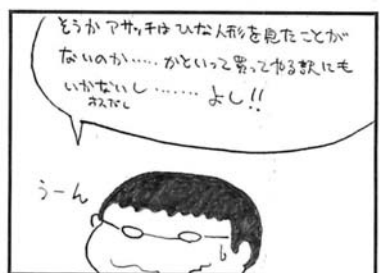 そうかアサッチはひな人形を見たことが
ないのか……かといって買ってやる訳にも
いかないし……よし!!
オスだし
うーん